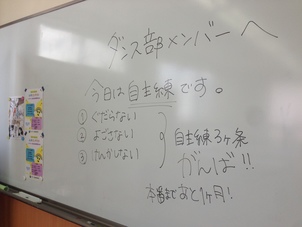 ダンス部メンバーへ
今日は自主練です。
① ぐだらない
② よごさない
③ けんかしない
自主練3ヶ条
がんば!!
本番まであと1ヶ月!